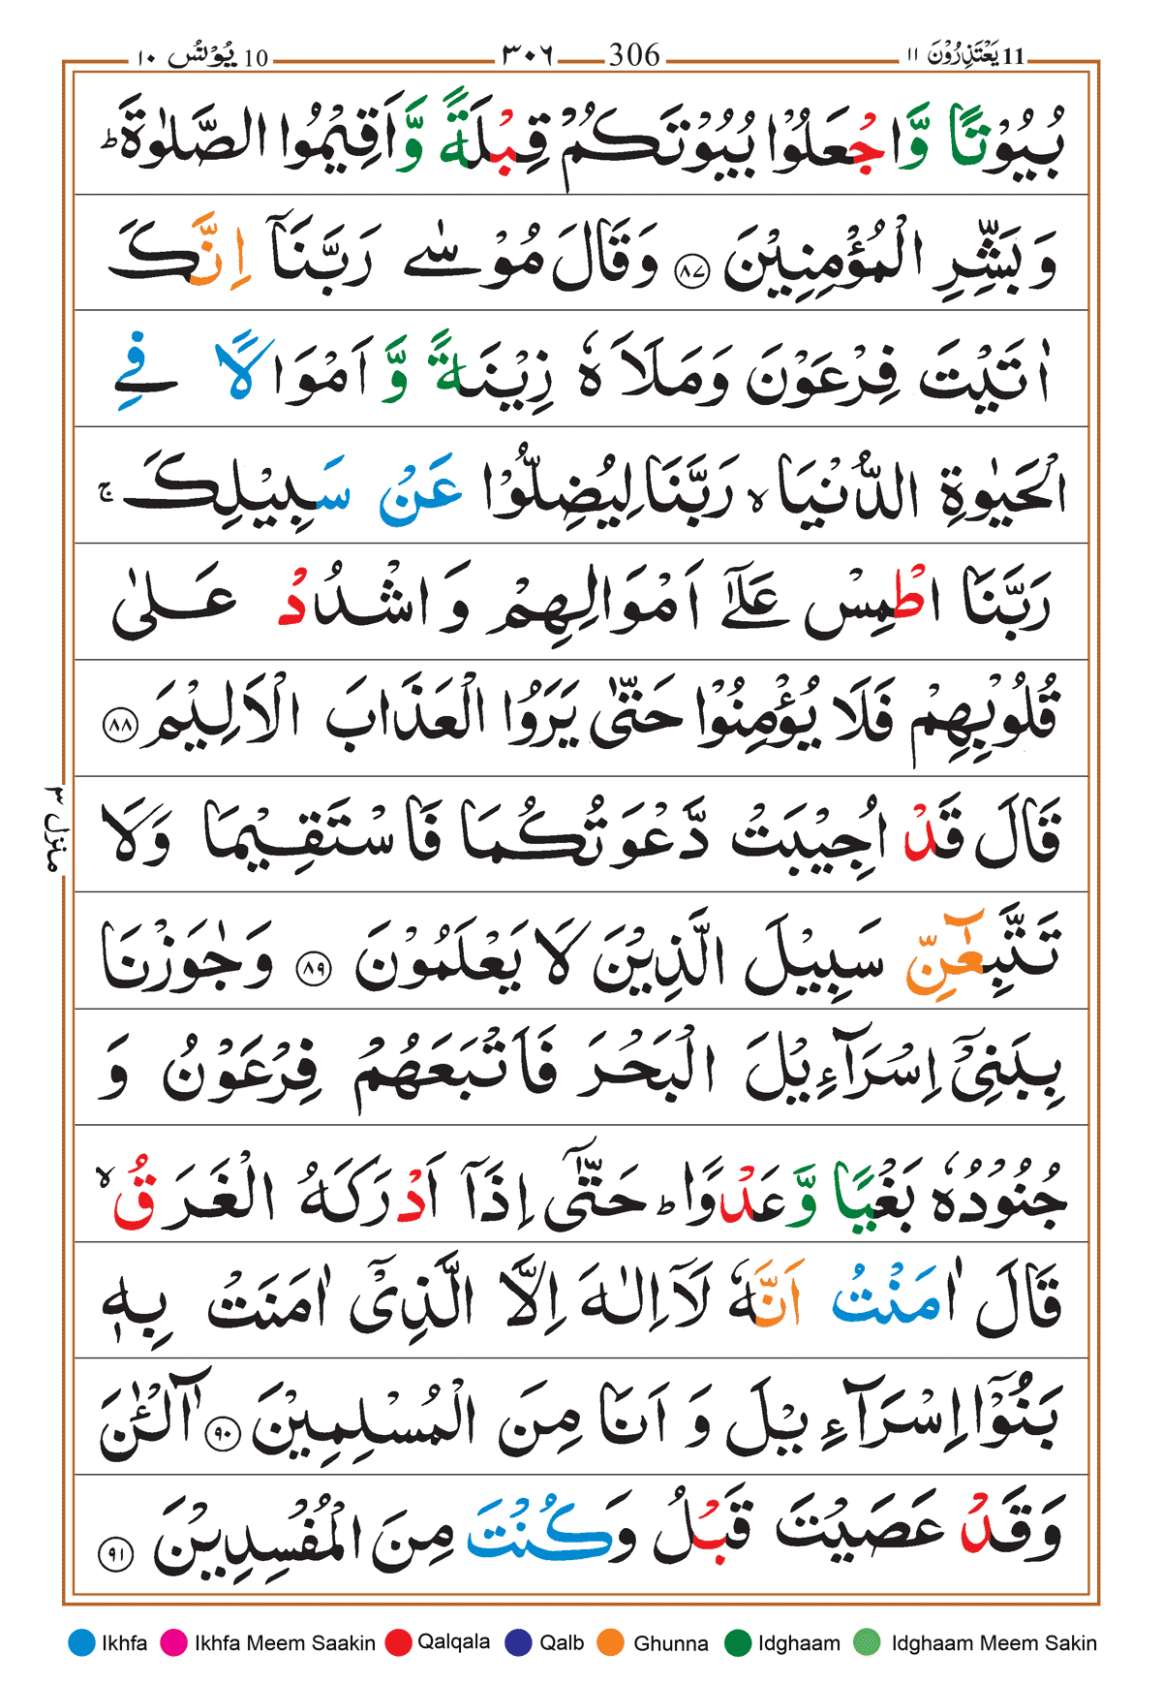 10 یُوْنُس ١٠ ٣٠٦ 306 11 یَعْتَذِرُوْنَ ١١
بُیُوْتًا وَّاجْعَلُوْا بُیُوْتَكُمْ قِبْلَةً وَّاَقِیْمُوا الصَّلٰوةَ ؕ
وَبَشِّرِ الْمُؤْمِنِیْنَ ﴿٨٧﴾ وَقَالَ مُوْسٰی رَبَّنَاۤ اِنَّكَ
اٰتَیْتَ فِرْعَوْنَ وَمَلَاَهٗ زِیْنَةً وَّ اَمْوَالًا فِی
الْحَیٰوةِ الدُّنْیَا ۙ رَبَّنَا لِیُضِلُّوْا عَنْ سَبِیْلِكَ ۚ
رَبَّنَا اطْمِسْ عَلٰۤی اَمْوَالِهِمْ وَاشْدُدْ عَلٰی
قُلُوْبِهِمْ فَلَا یُؤْمِنُوْا حَتّٰی یَرَوُا الْعَذَابَ الْاَلِیْمَ ﴿٨٨﴾
قَالَ قَدْ اُجِیْبَتْ دَّعْوَتُكُمَا فَاسْتَقِیْمَا وَلَا
تَتَّبِعٰٓنِّ سَبِیْلَ الَّذِیْنَ لَا یَعْلَمُوْنَ ﴿٨٩﴾ وَجٰوَزْنَا
بِبَنِیْۤ اِسْرَآءِیْلَ الْبَحْرَ فَاَتْبَعَهُمْ فِرْعَوْنُ وَ
جُنُوْدُهٗ بَغْیًا وَّعَدْوًا ؕ حَتّٰۤی اِذَاۤ اَدْرَكَهُ الْغَرَقُ ۙ
قَالَ اٰمَنْتُ اَنَّهٗ لَاۤ اِلٰهَ اِلَّا الَّذِیْۤ اٰمَنَتْ بِهٖ
بَنُوْۤا اِسْرَآءِیْلَ وَ اَنَا مِنَ الْمُسْلِمِیْنَ ﴿٩٠﴾ آٰلْـٰٔنَ
وَقَدْ عَصَیْتَ قَبْلُ وَكُنْتَ مِنَ الْمُفْسِدِیْنَ ﴿٩١﴾
منزل ٣
Ikhfa Ikhfa Meem Saakin Qalqala Qalb Ghunna Idghaam Idghaam Meem Sakin